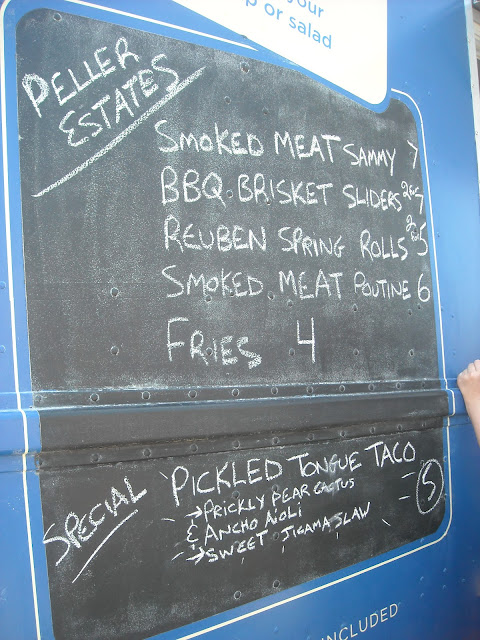 your
p or salad
PELLER
ESTATES
SMOKED MEAT SAMMY 7
BBQ BRISKET SLIDERS 2 FOR 7
REUBEN SPRING ROLLS 2 FOR 5
SMOKED MEAT POUTINE 6
FRIES 4
SPECIAL
PICKLED TONGUE TACO
→ PRICKLY PEAR CACTUS
& ANCHO AIOLI
→ SWEET JICAMA SLAW
5
INCLUDED